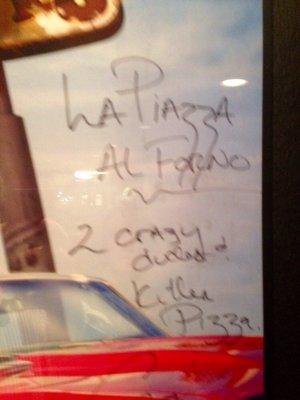 LA PIAZZA
AL FORNO
2 crazy
Killer
Pizza.